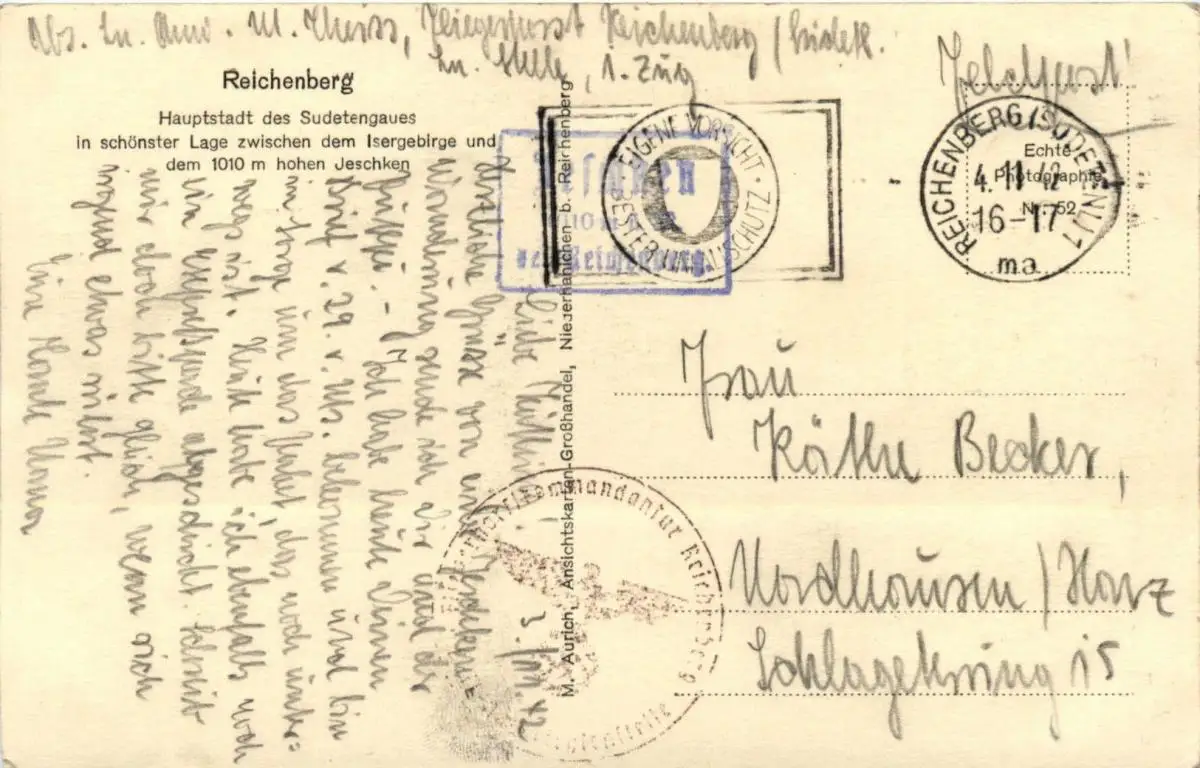 Abs. Ln. Anw. M. Theiss, Fliegerhorst Reichenberg / Sudetl.
Ln. Stelle, 1. Zug
Feldpost
Reichenberg
Hauptstadt des Sudetengaues
in schönster Lage zwischen dem Isergebirge und
dem 1010 m hohen Jeschken
M. Aurich, Ansichtskarten-Großhandel, Niederhanichen b. Reichenberg
EIGENE VORSICHT · BESTER UNFALLSCHUTZ
Jeschken
1010 m
bei Reichenberg.
REICHENBERG (SUDETENL) 1
4.11.42
16-17
ma
Echte
Photographie
Nr. 52
Fliegerhorstkommandantur Reichenberg
3. 42
Liebe
Herzliche Grüsse von einer
Wanderung sende ich Dir und der
Ich habe heute Deinen
Brief v. 29. v. Ms. bekommen und bin
in Sorge um das Paket, das noch unter=
wegs ist. Heute habe ich ebenfalls noch
ein abgeschickt. Schreib
mir doch bitte gleich, wenn sich
irgend etwas rührt.
Eine
Frau
Käthe Becker,
Nordhausen / Harz
Schlageterring 15